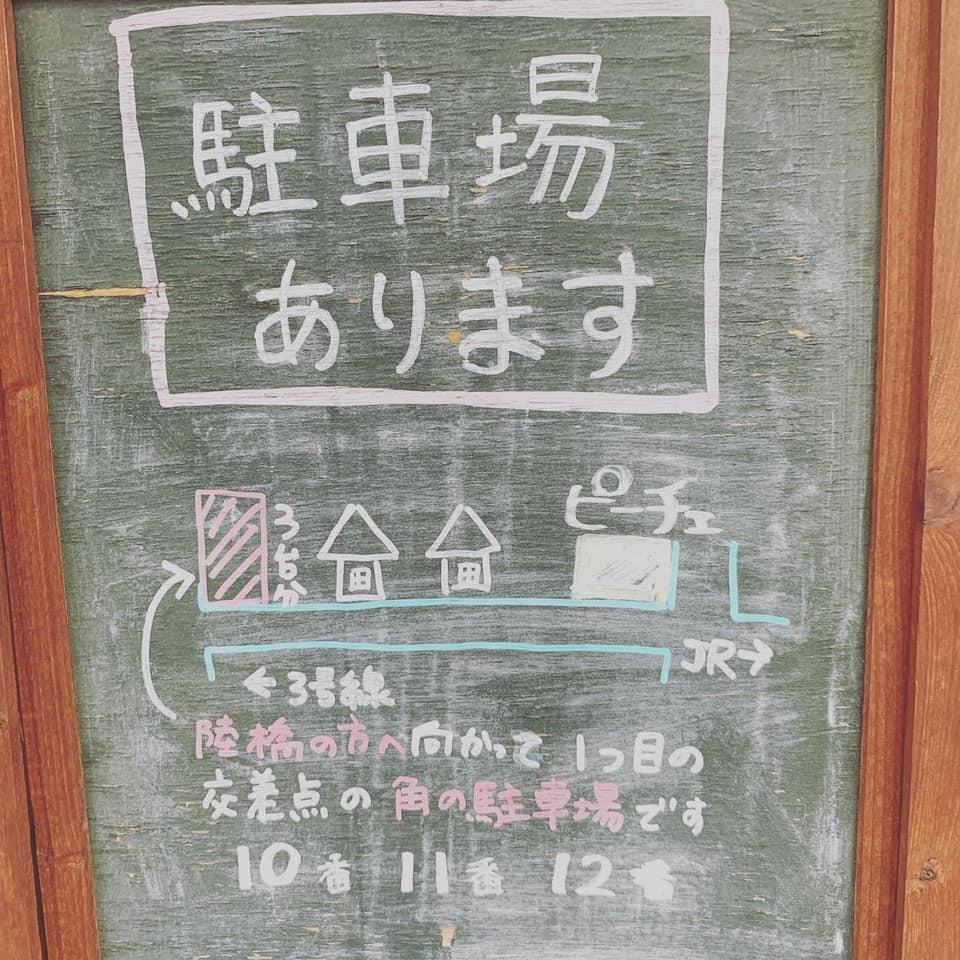 駐車場
あります
ピーチェ
3台分
JR→
←3号線
陸橋の方へ向かって 1つ目の
交差点の 角の駐車場です
10番 11番 12番